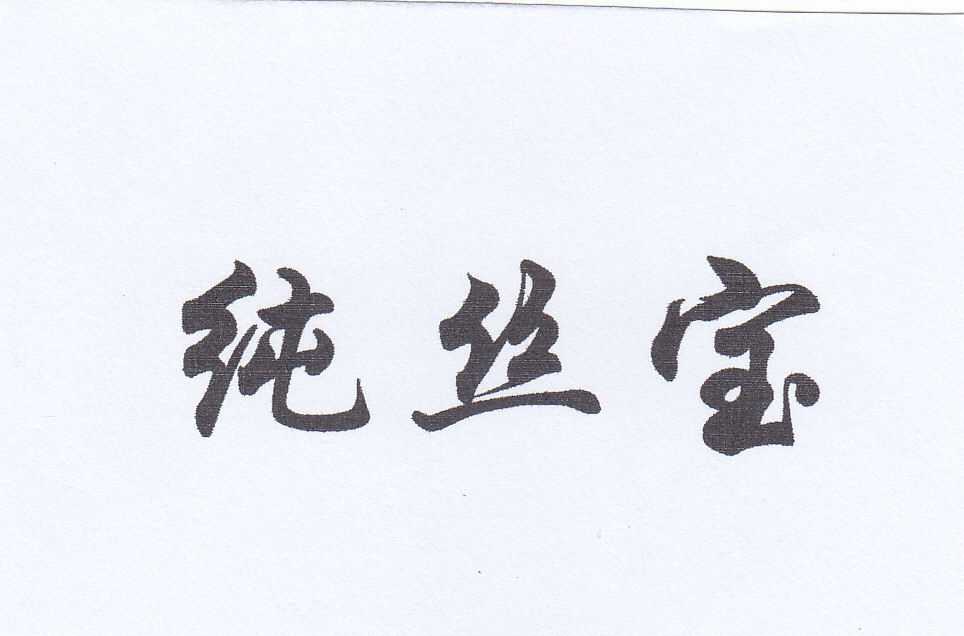 纯丝宝